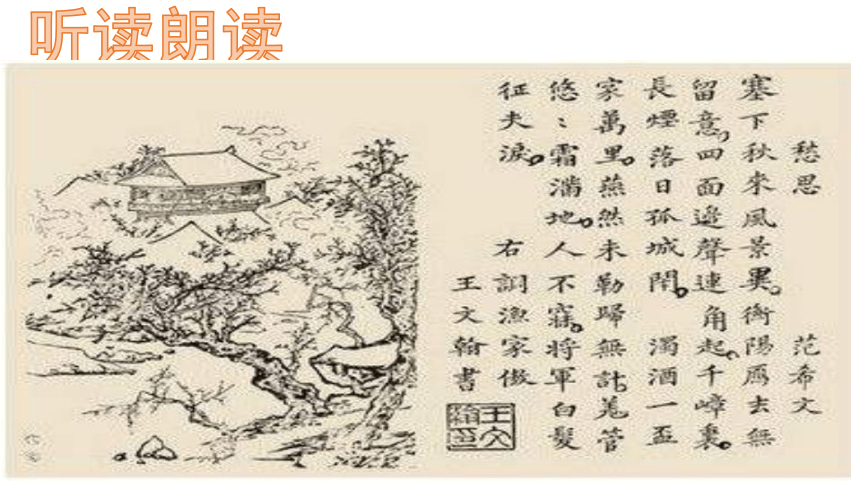 听读朗读
愁思 范希文
塞下秋來風景異。衡陽鴈去無
留意，四面邊聲連角起、千嶂裏。
長煙落日孤城閉。濁酒一盃
家萬里。燕然未勒歸無計。羌管
悠〻霜滿地。人不寐。將軍白髮
征夫淚。 右調漁家傲
王文翰書
王文翰印